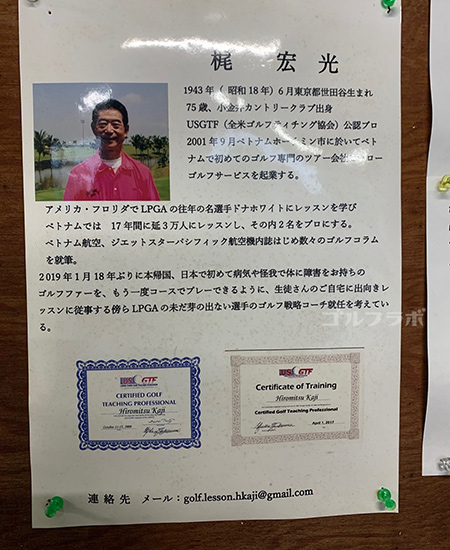 梶 宏光
1943年(昭和18年)6月東京都世田谷生まれ
75歳、小金井カントリークラブ出身
USGTF(全米ゴルフティチング協会)公認プロ
2001年9月ベトナムホーチミン市に於いてベト
ナムで初めてのゴルフ専門のツアー会社 ロー
ゴルフサービスを起業する。
アメリカ・フロリダでLPGAの往年の名選手ドナホワイトにレッスンを学び
ベトナムでは 17年間に延3万人にレッスンし、その内2名をプロにする。
ベトナム航空、ジェットスターパシフィック航空機内誌はじめ数々のゴルフコラム
を執筆。
2019年1月18年ぶりに本帰国、日本で初めて病気や怪我で体に障害をお持ちの
ゴルフファーを、もう一度コースでプレーできるように、生徒さんのご自宅に出向きレ
ッスンに従事する傍らLPGAの未だ芽の出ない選手のゴルフ戦略コーチ就任を考えてい
る。
ゴルフラボ
USGTF
CERTIFIED GOLF
TEACHING PROFESSIONAL
Hiromitsu Kaji
USGTF
Certificate of Training
Hiromitsu Kaji
Certified Golf Teaching Professional
April 1, 2017
連絡先 メール:golf.lesson.hkaji@gmail.com